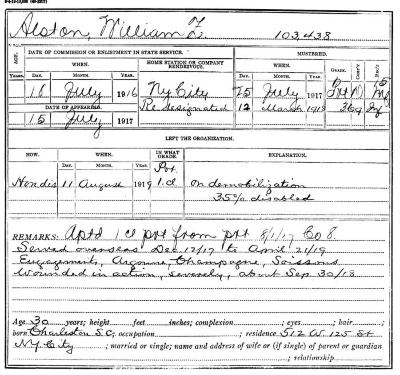 Alston, William L. 103,438
DATE OF COMMISSION OR ENLISTMENT IN STATE SERVICE. MUSTERED.
AGE. WHEN. HOME STATION OR COMPANY RENDEZVOUS. WHEN. GRADE. REG'T
YEARS. DAY. MONTH. YEAR. DAY. MONTH. YEAR.
18 July 1916 Ny City 25 July 1917 Pvt D 15 Inf
DATE OF APPEARING. Redesignated 12 March 1918 369 Inf
15 July 1917
LEFT THE ORGANIZATION.
HOW. WHEN. IN WHAT GRADE. EXPLANATION.
DAY. MONTH. YEAR.
Hondis 11 August 1919 Pvt 1.cl on demobilization
35% disabled
REMARKS: Aptd 1 cl pvt from pvt 8/1/17 Co 8
Served overseas Dec 12/17 to April 21/19
Engagements, Argonne, Champagne, Soissons
Wounded in action, severely, about Sep. 30/18
Age 30 years; height feet inches; complexion ; eyes ; hair ;
born Charleston S.C; occupation ; residence 512 W. 125 St
NY City ; married or single; name and address of wife or (if single) of parent or guardian
; relationship